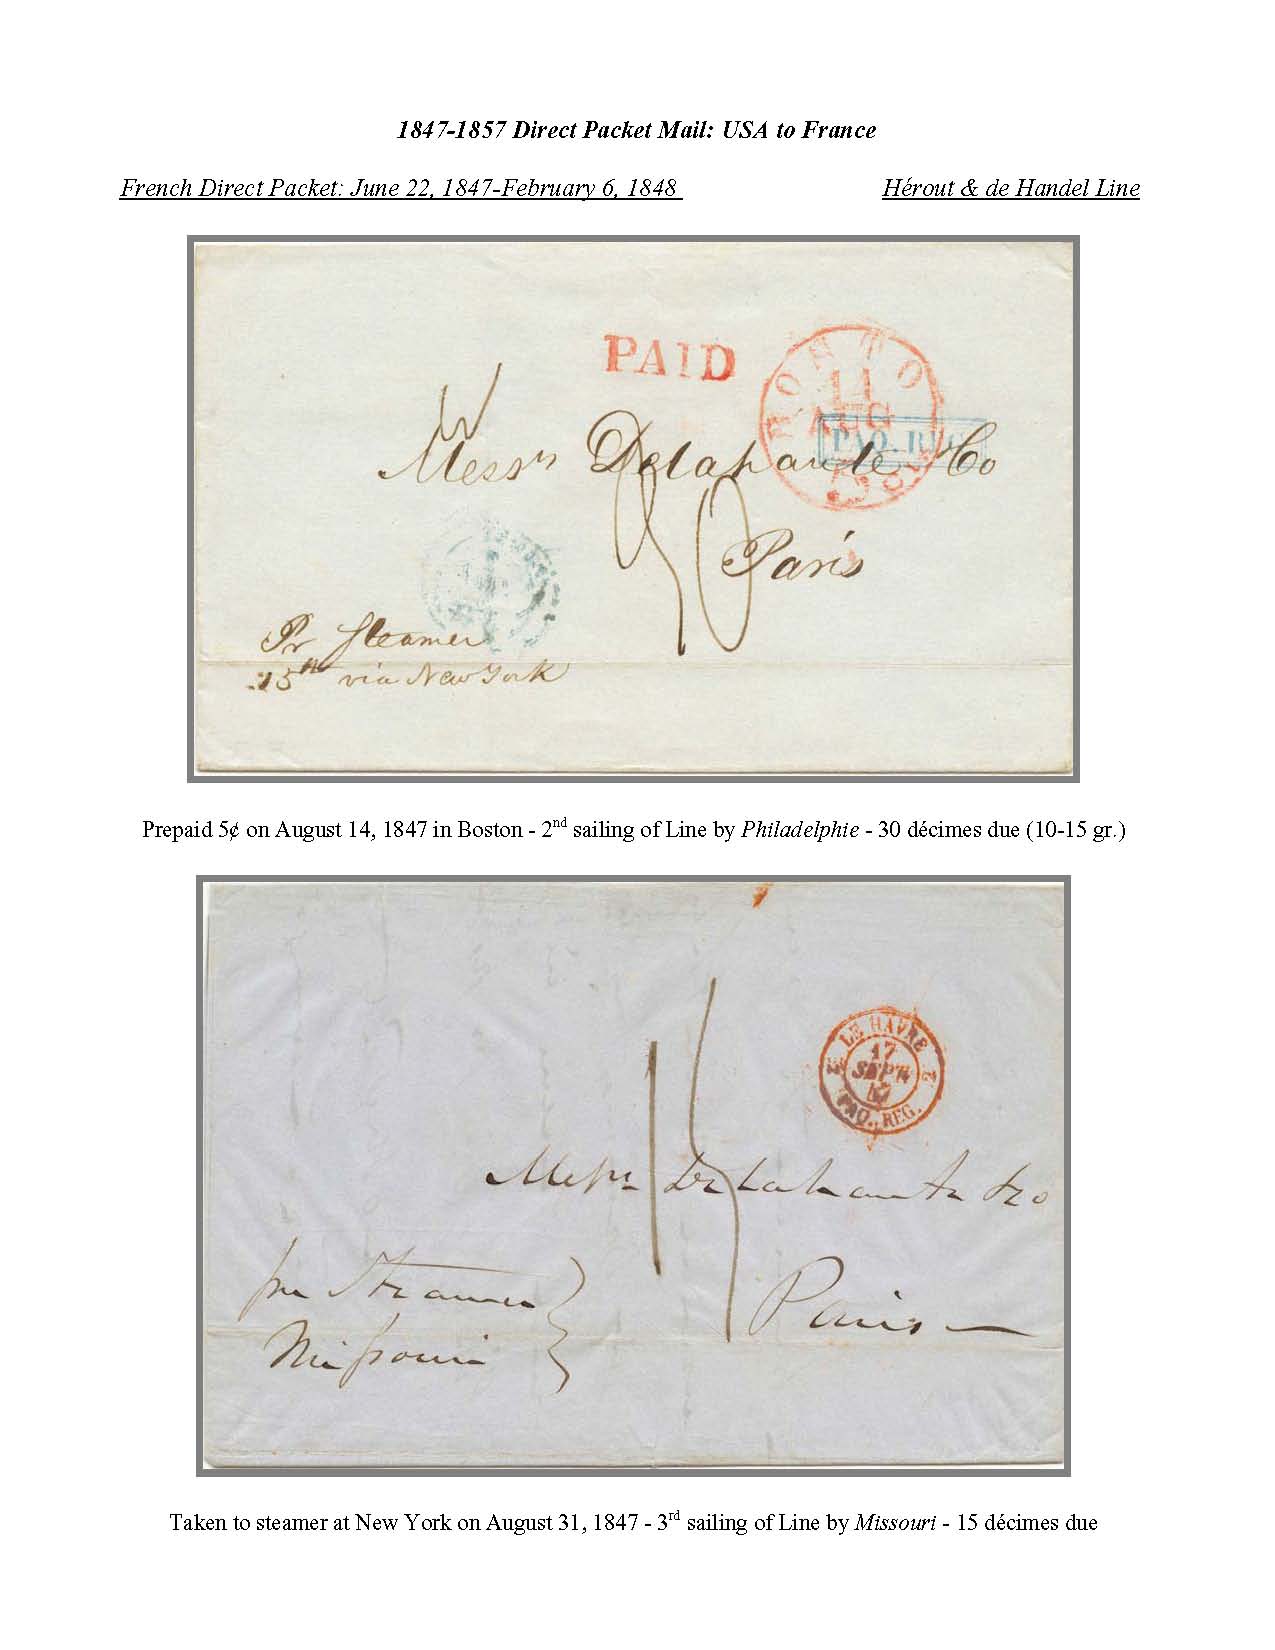 1847-1857 Direct Packet Mail: USA to France
French Direct Packet: June 22, 1847-February 6, 1848 Hérout & de Handel Line
PAID
BOSTON
14
AUG
5 cts
PAQ. REG.
Messrs Delahante & Co
30
Paris
Pr Steamer
15th via New York
Prepaid 5¢ on August 14, 1847 in Boston - 2nd sailing of Line by Philadelphie - 30 décimes due (10-15 gr.)
LE HAVRE
17
SEPT
47
2 2
PAQ. REG.
15
Messrs Delahante & Co
per Steamer
Missouri
Paris
Taken to steamer at New York on August 31, 1847 - 3rd sailing of Line by Missouri - 15 décimes due